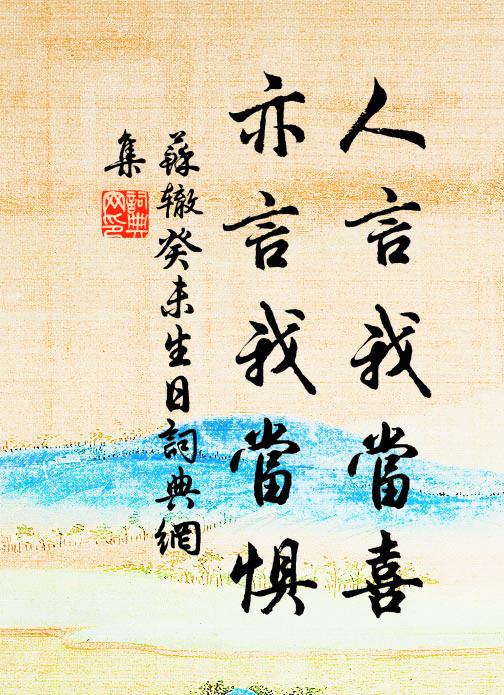 人言我當喜
亦言我當惧
蘇辙癸未生日詞典網
集
詞典
网印